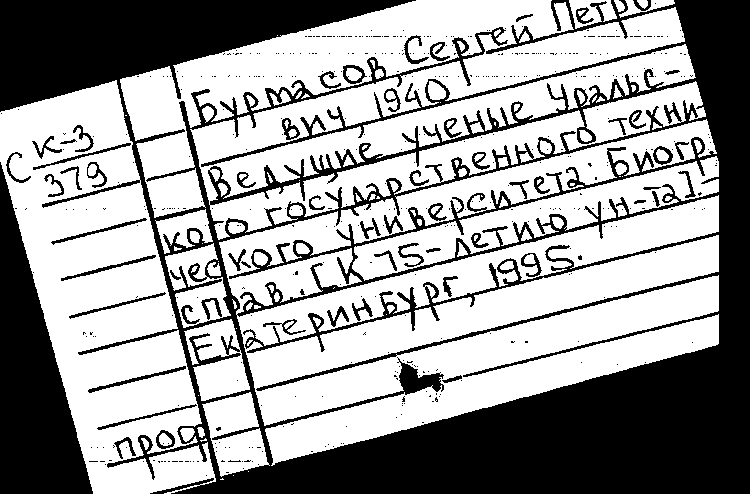 Бурмасов, Сергей Петро
вич, 1940
СК-3
379
Ведущие ученые Уральс-
кого государственного техни-
ческого университета: Биогр.
справ.: [К 75-летию ун-та].-
Екатеринбург, 1995.
проф.